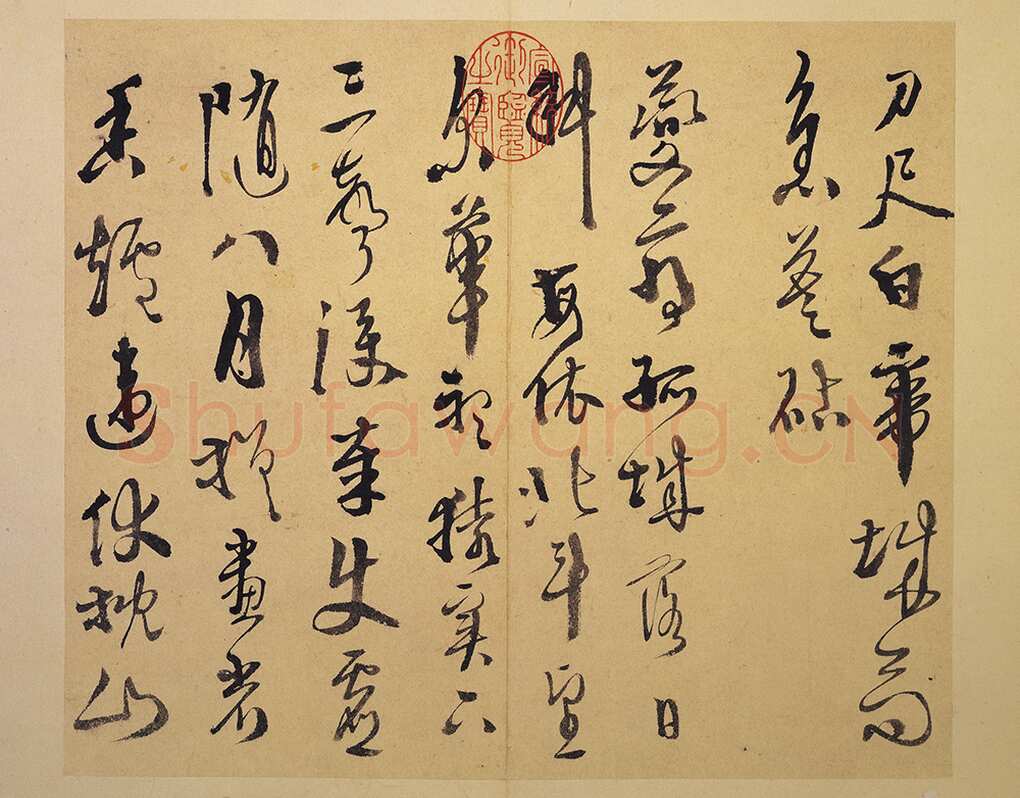 刀尺白帝城高
急暮砧
夔府孤城落日
斜每依北斗望
京華聽猿實下
三聲淚奉使虛
隨八月槎畫省
香爐違伏枕山
宣統御覽之寶
Shufawang.CN